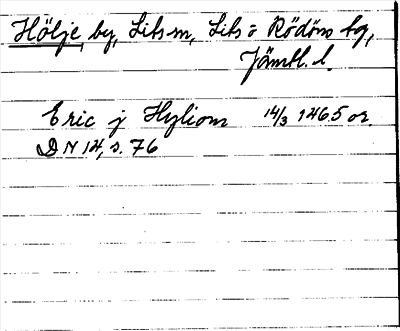 Hölje, by, Lits sn, Lits o Rödöns tg,
Jämtl. l.
Eric j Hyliom 14/3 1465 or.
DN 14, s. 76